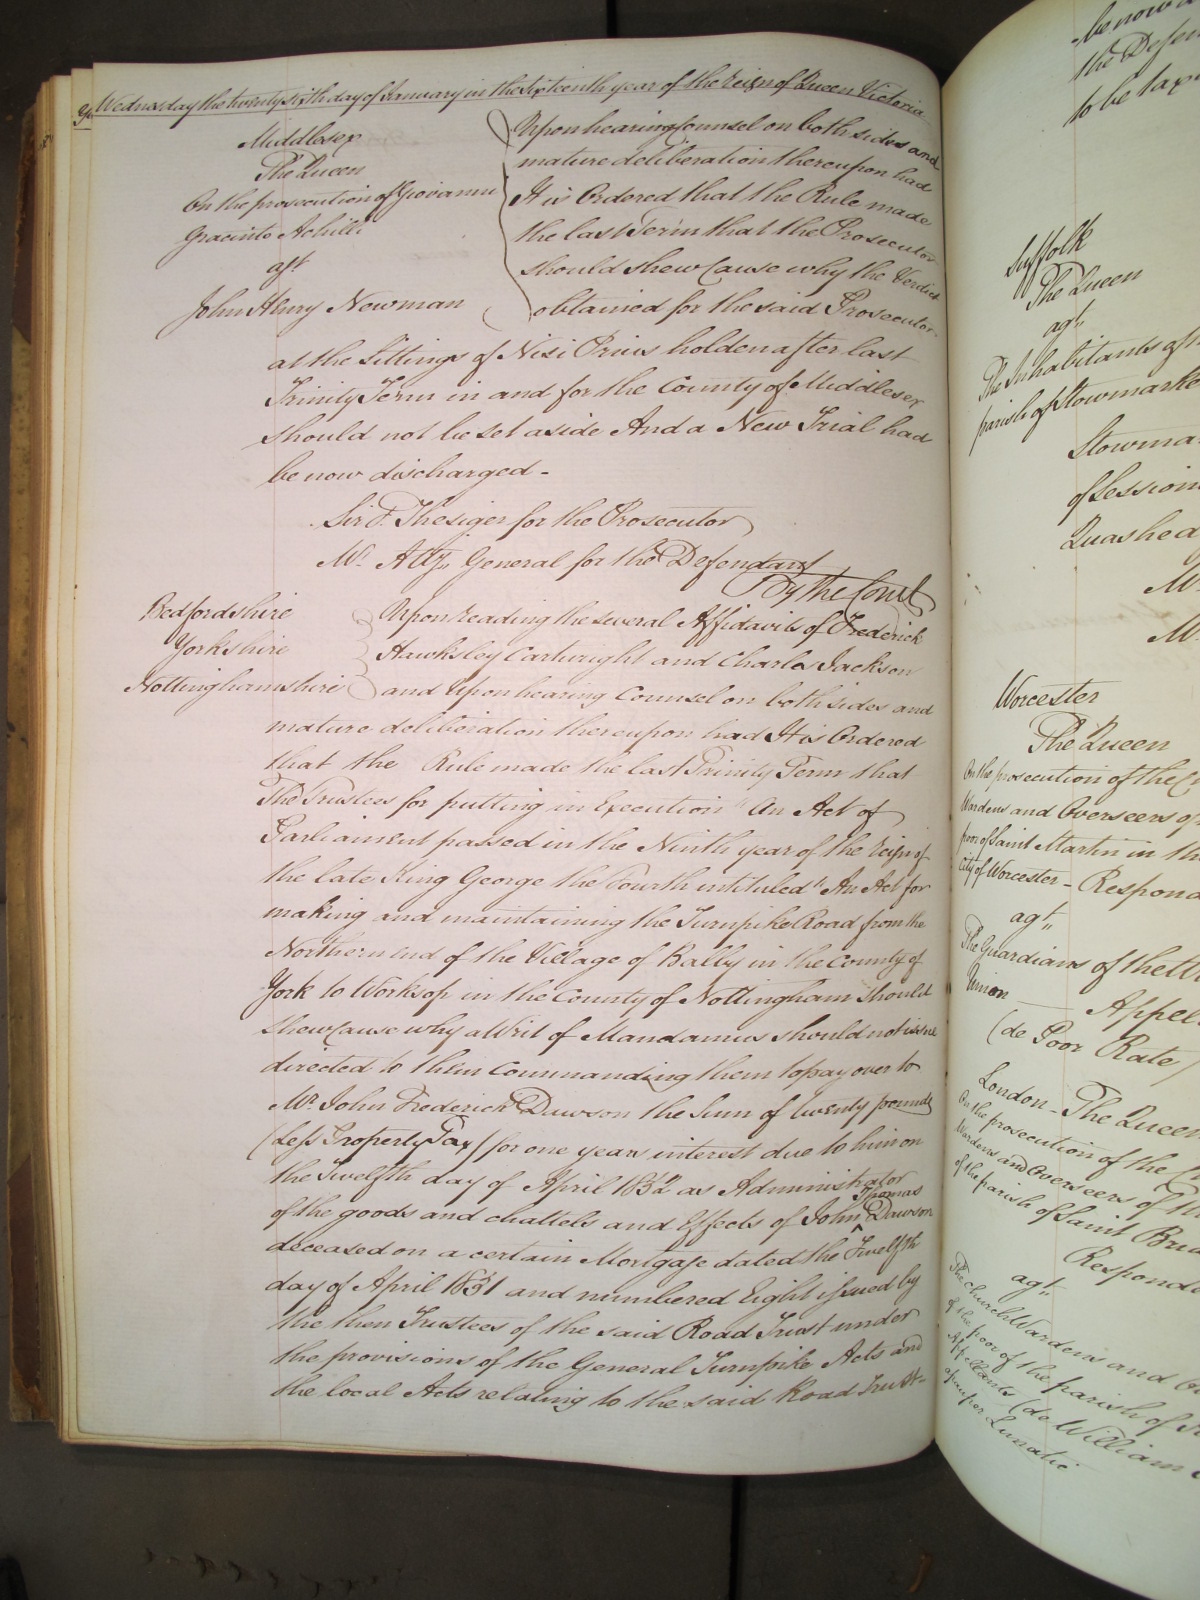 Wednesday the twenty sixth day of January in the sixteenth year of the Reign of Queen Victoria
Middlesex
The Queen
On the prosecution of Giovanni
Giacinto Achilli
agt
John Henry Newman
Upon hearing Counsel on both sides and
mature deliberation thereupon had
It is Ordered that the Rule made
the last Term that the Prosecutor
should shew Cause why the Verdict
obtained for the said Prosecutor
at the Sittings of Nisi Prius holden after last
Trinity Term in and for the County of Middlesex
should not be set aside And a New Trial had
be now discharged -
Sir F. Thesiger for the Prosecutor
Mr. Atty. General for the Defendant
By the Court
Bedfordshire
Yorkshire
Nottinghamshire
Upon reading the several Affidavits of Frederick
Hawksley Cartwright and Charles Jackson
and Upon hearing Counsel on both sides and
mature deliberation thereupon had It is Ordered
that the Rule made the last Trinity Term that
The Trustees for putting in Execution " An Act of
Parliament passed in the Ninth year of the reign of
the late King George the Fourth intituled " An Act for
making and maintaining the Turnpike Road from the
Northern end of the Village of Balby in the County of
York to Worksop in the County of Nottingham should
shew Cause why a Writ of Mandamus should not issue
directed to them Commanding them to pay over to
Mr. John Frederick Dawson the Sum of twenty pounds
(Less Property Tax) for one years interest due to him on
the Twelfth day of April 1852 as Administrator
of the goods and chattels and Effects of John Thomas Dawson
deceased on a certain Mortgage dated the Twelfth
day of April 1831 and numbered Eight issued by
the then Trustees of the said Road Trust under
the provisions of the General Turnpike Acts and
the local Acts relating to the said Road Trust -
be now d
the Defen
to be taxe
Suffolk
The Queen
agt.
The Inhabitants of
parish of Stowmarke
Stowma
of Session
Quashed
M
M
Worcester
The Queen
On the prosecution of the C
Wardens and Overseers of
poor of Saint Martin in the
City of Worcester - Respond
agt.
The Guardians of the W
Union Appel
(de Poor Rate)
London - The Queen
On the prosecution of the C
Wardens and Overseers of the
of the parish of Saint Bri
Responde
agt.
The Church Wardens and O
of the poor of the parish of S
Appellants (de William
a pauper Lunatic